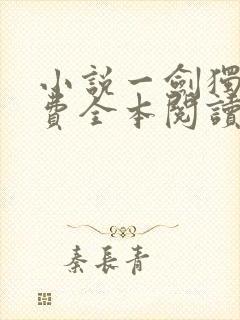 小說一劍獨
費全本閱讀
秦長青